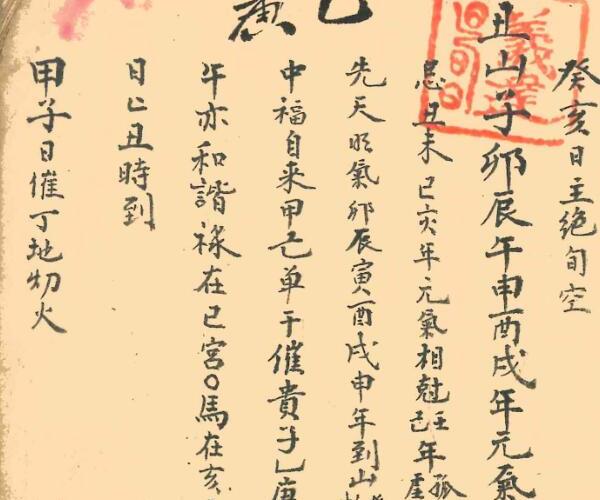 癸亥日主絶旬空
丑山子卯辰午申酉戌年元氣
忌丑未巳亥年元氣相尅壬己年孤虛
先天旺氣卯辰寅酉戌申年到山
中福自来甲乙单干催貴子乚庚
午亦和諧禄在巳宮○馬在亥
日亡丑時到
甲子日催丁地刧火